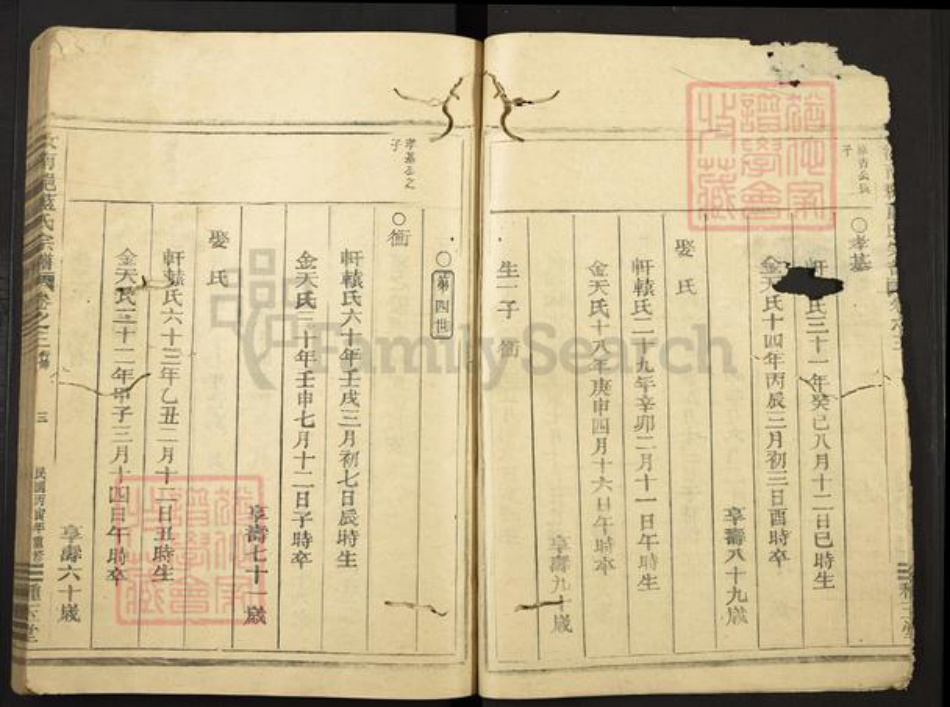 子
○孝基
氏三十一年癸巳八月十二日巳時生
金天氏十四年丙辰三月初三日酉時卒
享壽八十九歲
娶 氏
軒轅氏二十九年辛卯二月十一日午時生
金天氏十八年庚申四月十六日午時卒
享壽九十歲
生一子 衝
○第四世
孝基公之
子
○衝
軒轅氏六十年壬戌三月初七日辰時生
金天氏三十年壬申七月十二日子時卒
享壽七十一歲
娶 氏
軒轅氏六十三年乙丑二月十二日丑時生
金天氏二十二年甲子三月十四日午時卒
享壽六十歲
氏宗譜
卷之三
三
民國丙寅年重修
種玉堂
FamilySearch